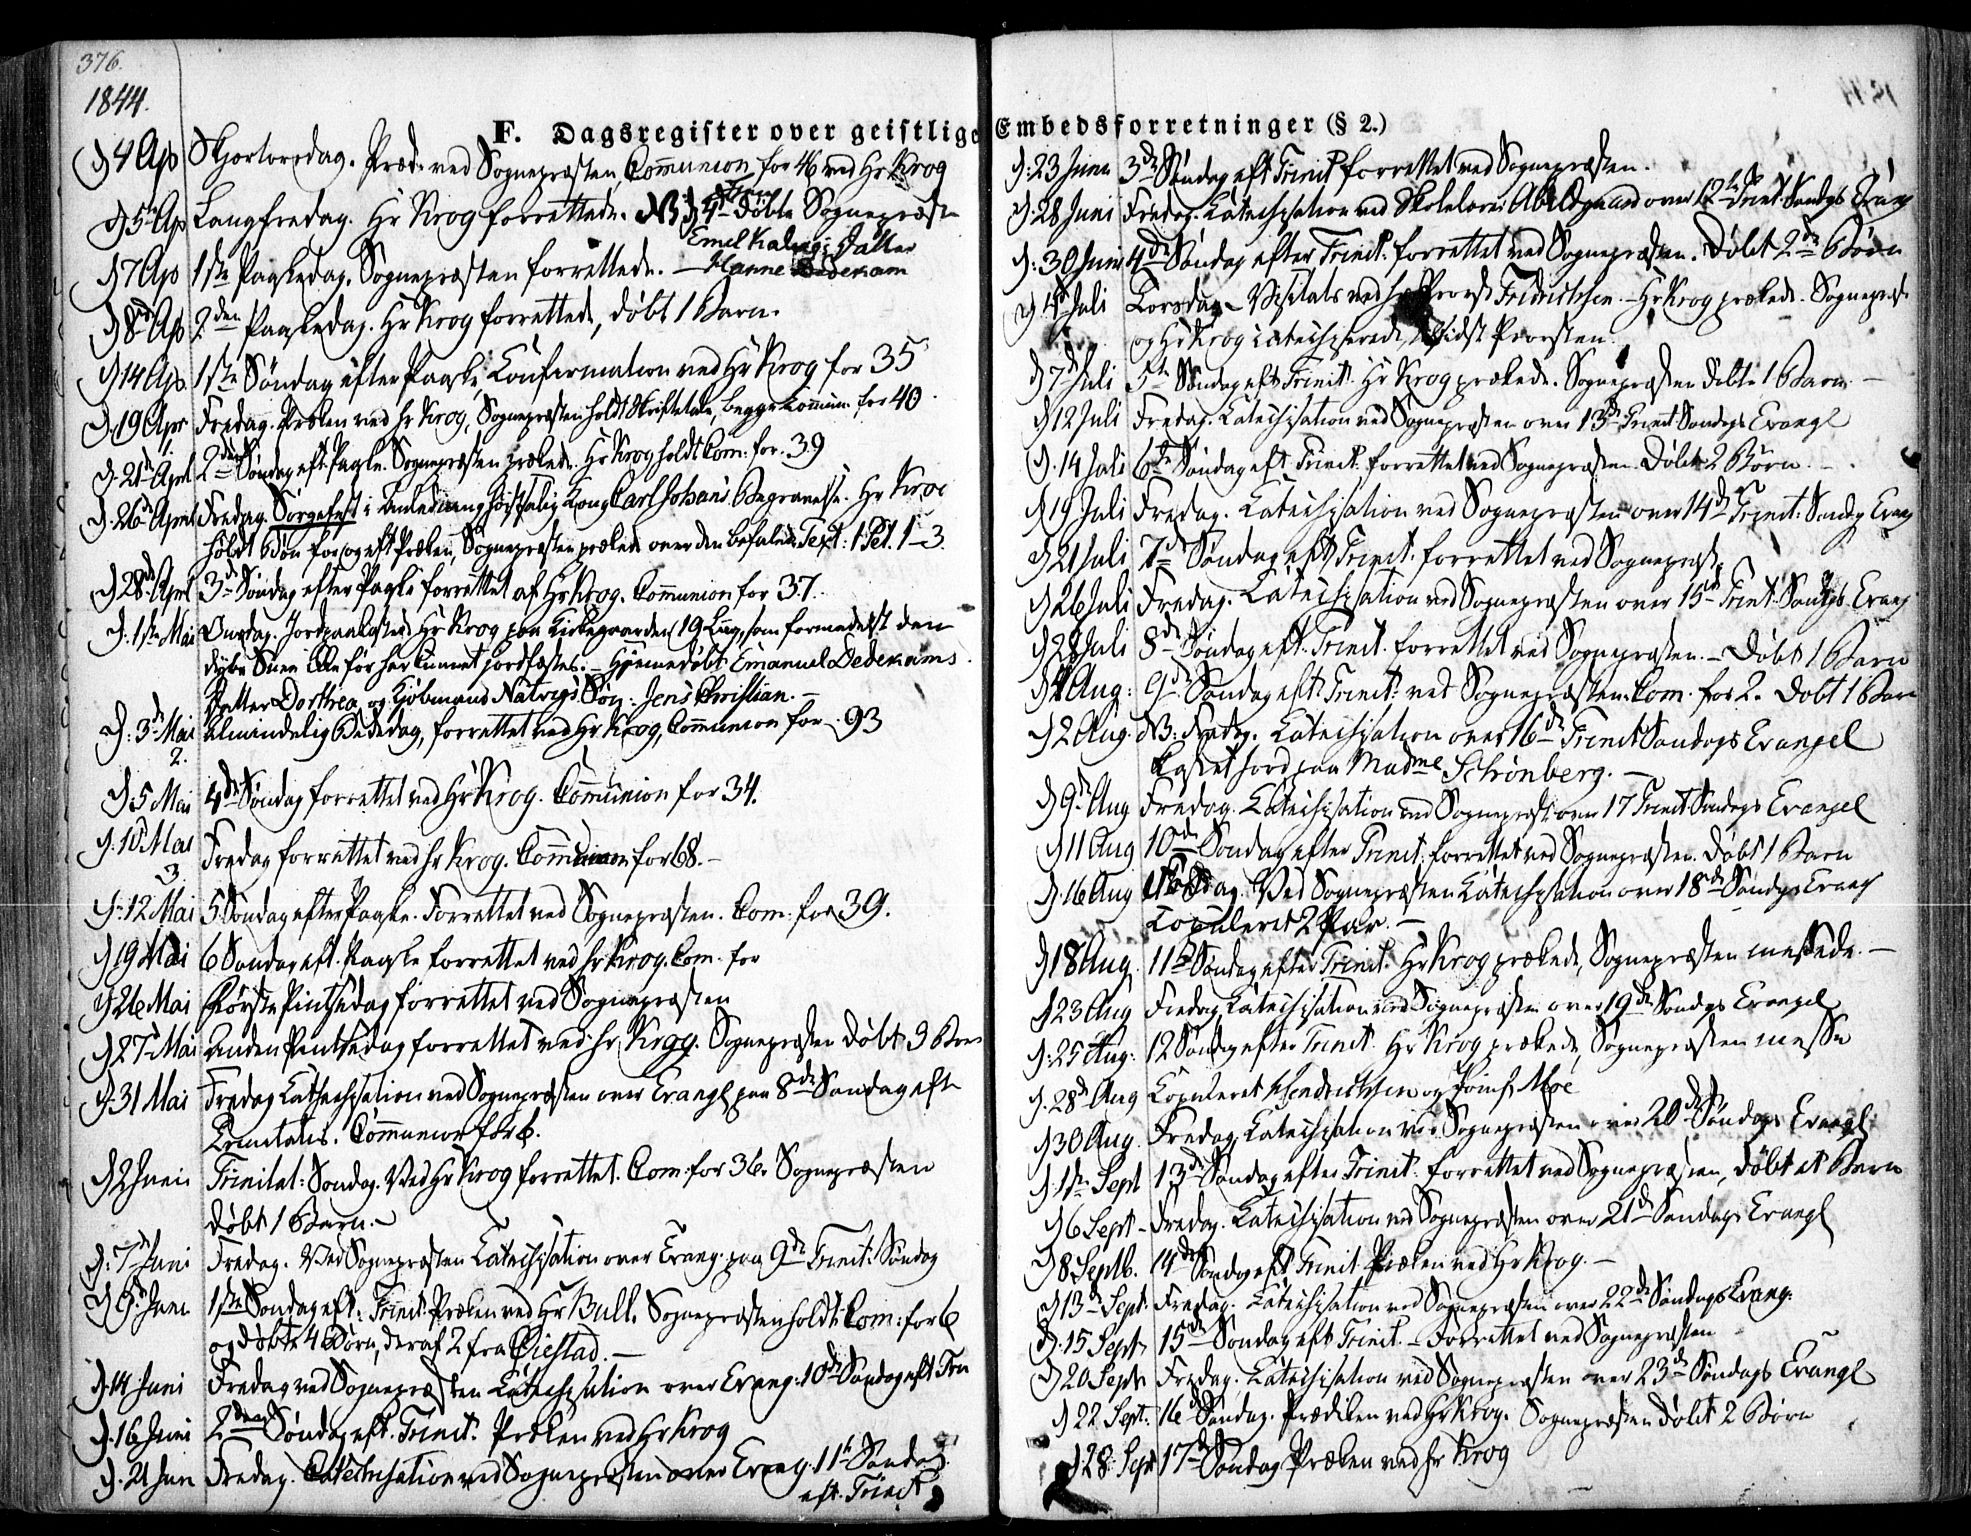 376.
1844.
F. Dagsregister over geistlige Embedsforretninger (§ 2.)
D 4 Ap Skjærtorsdag. Præd. ved Sognepræsten, Communion for 46 ved Hr Krog
D 5 Ap Langfredag. Hr Krog forrettede. NB D 4de døbte Sognepræst
Emel Kalvig: Datter
D 7 Ap 1ste Paaskedag. Sognepræsten forrettede. — Hanne Dedekam
D 8de Ap 2den Paaskedag. Hr Krog forrettede, døbt 1 Barn.
D 14 Ap. 1ste Søndag efter Paaske, Confirmation ved Hr Krog for 35
D. 19 Apr Fredag. Præken ved Hr Krog, Sognepræsten holdt Skriftetale, begge kommun. for 40.
D. 21de April 2den Søndag eft Paaske. Sognepræsten prækede. Hr Krog holdt Com: for. 39
D. 26de April Fredag. Sørgefest i Anledning høistsalig Kong Carl Johans Begravelse. Hr Krog
holdt Bøn for og eft Præken, Sognepræsten prækede over den befalede Text: 1 Pet. 1–3.
D 28de April 3de Søndag efter Paaske forrettet af Hr Krog. Communion for 37.
D. 1ste Mai Onsdag. Jordpaakastede Hr Krog paa Kirkegaarden 19 Liig, som formedelst den
dybe Snee ikke før har kunnet jordfæstes. — Hjemmedøbt Emanuel Dedekams
Datter Dorthea og Kjøbmand Natvigs Søn: Jens Christian. —
D: 3de Mai Almindelig Bededag, forrettet ved Hr Krog, Communion for – 93
2.
D 5 Mai 4de Søndag forrettet ved Hr Krog. Communion for 34.
D. 10 Mai Fredag forrettet ved Hr Krog. Communion for 68. –
3.
D: 12 Mai 5 Søndag efter Paaske. Forrettet ved Sognepræsten. Com: for 39.
D 19 Mai 6 Søndag eft. Paaske forrettet ved Hr Krog. Com. for
D 26 Mai Første Pintsedag forrettet ved Sognepræsten
D 27 Mai Anden Pintsedag forrettet ved Hr Krog. Sognepræsten døbt 3 Børn
D. 31 Mai Fredag Catechisation ved Sognepræsten over Evangl paa 8de Søndag eft
Trinitatis. Communion for 6.
D 2 Juni Trinitat: Søndag. Ved Hr Krog forrettet. Com: for 36. Sognepræsten
døbt 1 Barn. –
D: 7de Juni Fredag. Ved Sognepræsten Catechisation over Evang: paa 9de Trinit: Søndag
D 9de Juni 1ste Søndag eft. Trinit: Præken ved Hr Bull. Sognepræsten holdt Com: for 6
og døbte 4 Børn, deraf 2 fra Øiestad. —
D. 14 Juni Fredag ved Sognepræsten Catechisation over Evang: 10de Søndag eft Trin
D. 16 Juni 2den Søndag eft. Trinit: Præken ved Hr Krog
D. 21 Jun Fredag. Catechisation ved Sognepræsten over Evang. 11te Søndag
eft. Trinit
D. 23 Juni 3de Søndag eft Trinit forrettet ved Sognepræsten.
D. 28 Juni Fredag. Catechisation ved Skolelærer Abildgaard over 12te Trinit. Søndags Evang
D: 30 Juni 4de Søndag efter Trinit. forrettet ved Sognepræsten. Døbt 2de Børn
D 4de Juli Torsdag – Visitats ved Hr Provst Fredrichsen. – Hr Krog prækede. Sognepræst
og Hr Krog catechiserede, tilsidst Provsten
D 7de Juli 5te Søndag eft Trinit. Hr Krog prækede. Sognepræsten døbte 1 Barn. –
D 12 Juli Fredag. Catechisation ved Sognepræsten over 13de Trinit Søndags Evangl
D. 14 Juli 6te Søndag eft Trinit. forrettet ved Sognepræsten. Døbt 2 Børn. –
D 19 Juli Fredag. Catechisation ved Sognepræsten over 14de Trinit: Søndag Evang
D 21 Juli 7de Søndag eft Trinit. forrettet ved Sognepræst
D 26 Juli Fredag. Catechisation ved Sognepræsten over 15de Trinit: Søndgs Evang
D 28 Juli 8de Søndag eft. Trinit. forrettet ved Sognepræsten. – Døbt 1 Barn
D 4 Aug: 9de Søndag eft. Trinit: ved Sognepræsten. Com. for 2. Døbt 1 Barn
D 2 Aug. NB: Fredag. Catechisation over 16de Trinit Søndags Evangel
Kastet Jord paa Madme Schrønberg. —
D 9de Aug Fredag. Catechisation ved Sognepræst. over 17 Trinit Søndags Evangel
D 11 Aug 10de Søndag efter Trinit. forrettet ved Sognepræsten. Døbt 1 Barn
D. 16 Aug Fredag. Ved Sognepræsten Catechisation over 18de Søndgs Evang
Copuleret 2 Par. –
D 18 Aug. 11te Søndag efter Trinit. Hr Krog prækede, Sognepræsten messede. –
D 23 Aug Fredag Catechisation ved Sognepræsten over 19de Søndgs Evangel
D: 25 Aug: 12 Søndag efter Trinit. Hr Krog prækede, Sognepræsten messede
D. 28de Aug Copuleret Hendrichsen og Jomf. Moe
D 30 Aug. Fredag, Catechisation ved Sognepræsten over 20de Søndags Evangl:
D. 1ste Sept 13de Søndag efter Trinit. forrettet ved Sognepræsten, døbt et Barn
D 6 Sept – Fredag. Catechisation ved Sognepræsten over 21de Søndags Evangl
D 8 Septb. 14de Søndag eft Trinit Præken ved Hr Krog. –
D 13de Sept: Fredag. Catechisation ved Sognepræsten over 22de Søndags Evang:
D. 15 Sept. 15de Søndag eft Trinit. – Forrettet ved Sognepræsten
D 20 Sept. Fredag. Catechisation ved Sognepræsten over 23de Søndags Evangl
D 22 Sept. 16de Søndag. Prædiken ved Hr Krog. Sognepræsten døbt 2 Børn
D 28. Sept 17de Søndag Præken ved Hr Krog